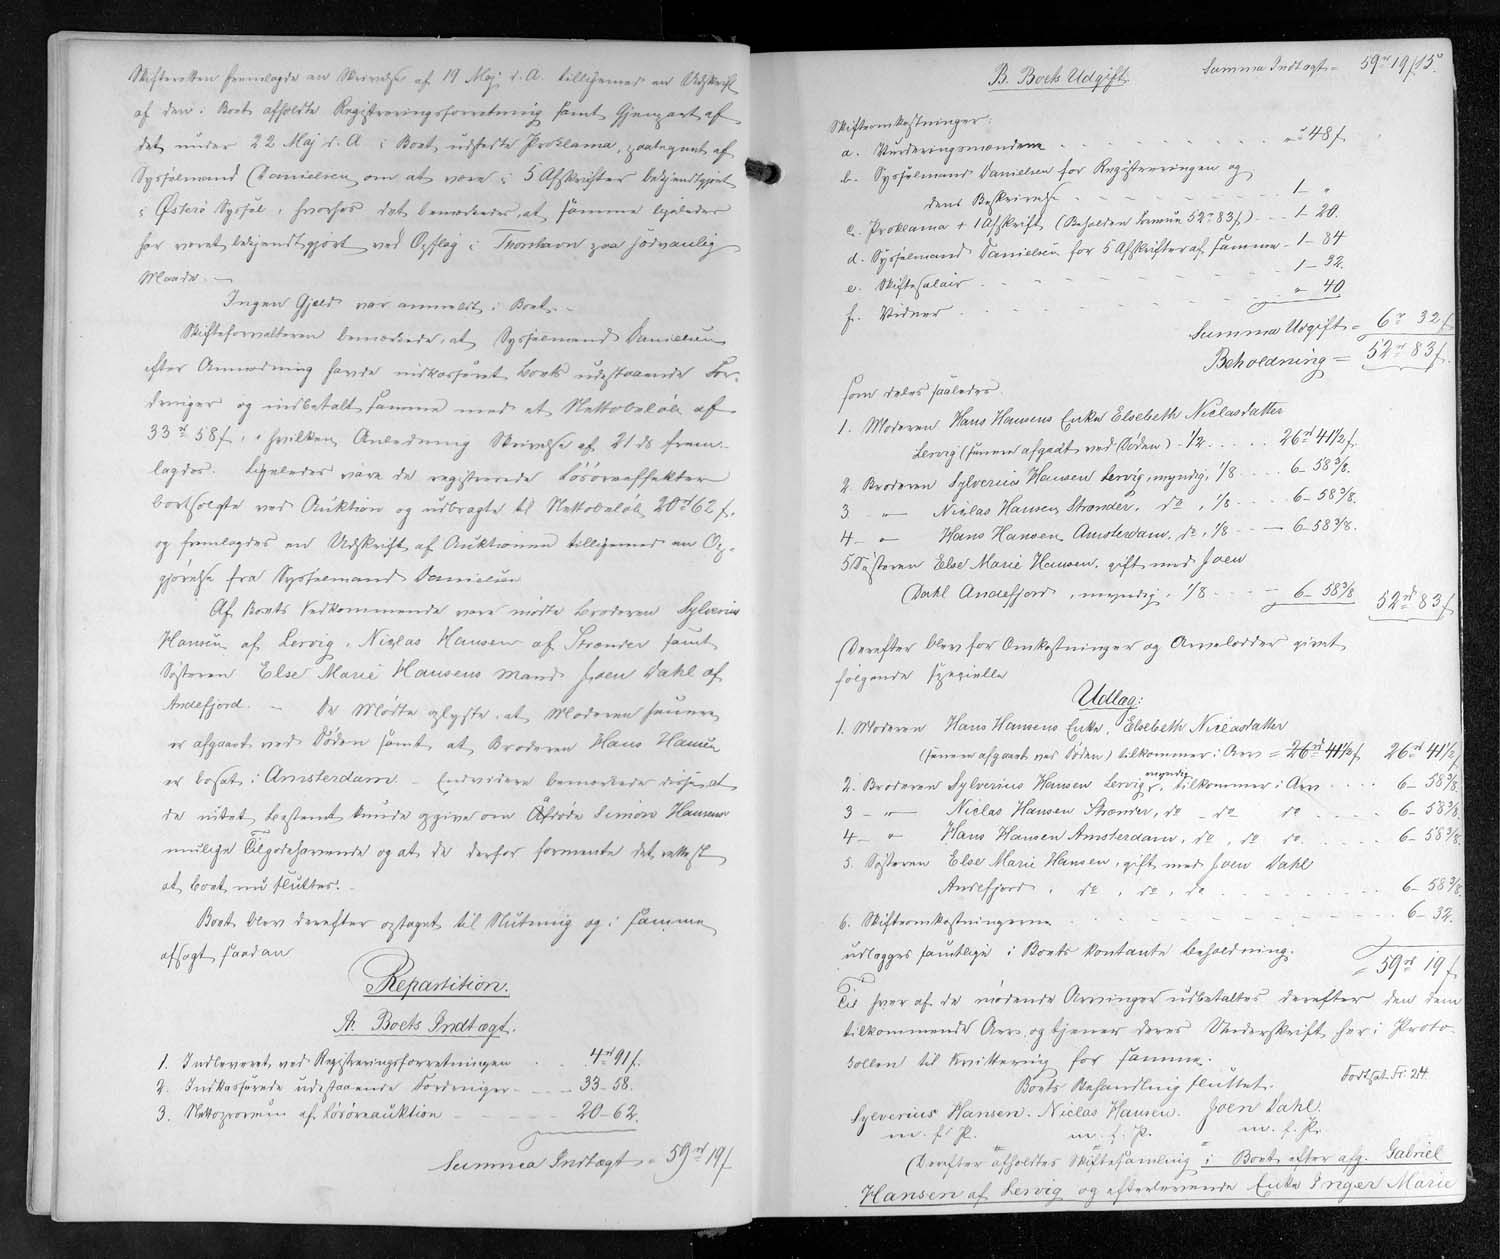 Skifteretten fremlagde en Skrivelse af 19 Maj d. A. tilligemed en Udskrift
af den i Boet afholdte Registreringsforretning samt Gjenpart af
det under 22 Maj d. A i Boet udstedte Proklama, paategnet af
Sysselmand Danielsen om at være i 5 Afskrifter bekjendtgjort
i Østerø Syssel, hvorhos det bemærkedes, at samme ligeledes
har været bekjendtgjort ved Opslag i Thorshavn paa sædvanlig
Maade. —
Ingen Gjæld var anmeldt i Boet. —
Skifteforvalteren bemærkede, at Sysselmand Danielsen
efter Anmodning havde indkasseret Boets udestaaende For-
dringer og indbetalt samme med et Nettobeløb af
33 rd 58 f, i hvilken Anledning Skrivelse af 21 ds frem-
lagdes. Ligeledes vare de registrerede Løsøreeffekter
bortsolgte ved Auktion og udbragte til Nettobeløb 20 rd 62 f,
og fremlagdes en Udskrift af Auktionen tilligemed en Op-
gjørelse fra Sysselmand Danielsen
Af Boets Vedkommende vare mødte Broderen Sylverius
Hansen af Lervig, Niclas Hansen af Strænder samt
Søsteren Else Marie Hansens Mand Joen Dahl af
Andefjord. — De Mødte oplyste, at Moderen senere
er afgaaet ved Døden samt at Broderen Hans Hansen
er bosat i Amsterdam — Endvidere bemærkede disse, at
de intet bestemt kunde opgive om Afdøde Simon Hansens
mulige Tilgodehavende og at de derfor formente det rettest
at boet nu sluttes. —
Boet blev derefter optaget til Slutning og i samme
afsagt saadan
Repartition.
A. Boets Indtægt.
1. Indleveret ved Registreringsforretningen . . 4 rd 91 f.
2. Indkasserede udestaaende Fordringer — — 33 – 58.
3. Nettoprovenu af Løsøreauktion — — — 20 – 62.
Summa Indtægt = 59 rd 19 f
B. Boets Udgift. Summa Indtægt = 59 rd 19 f 15.
Skifteomkostninger:
a. Vurderingsmændene . . . . . . " – 48 f
b. Sysselmand Danielsen for Registreringen og
dens Beskrivelse . . . . . 1 – "
c. Proklama + 1 Afskrift (Beholden Formue 52 rd 83 f) . . . 1 – 20.
d. Sysselmand Danielsen for 5 Afskrifter af samme – 1 – 84
e. Skiftesalair . . . . . 1 – 32.
f. Vidner . . . . . " 40
Summa Udgift = 6 rd 32 f
Beholdning = 52 rd 83 f.
som deles saaledes.
1. Moderen Hans Hansens Enke Elsebeth Niclasdatter
Lervig (senere afgaaet ved Døden) . 1/2 . . . . . 26 rd 41 1/2 f.
2. Broderen Sylverius Hansen Lervig, myndig, 1/8 . . . . 6 – 58 3/8.
3 – " – Niclas Hansen Strænder, do, 1/8 . . . . 6 – 58 3/8.
4 – " Hans Hansen Amsterdam, do, 1/8 – – – 6 – 58 3/8.
5 Søsteren Else Marie Hansen, gift med Joen
Dahl Andefjord, myndig, 1/8 . . . – 6 – 58 3/8 52 rd 83 f
Derefter blev for Omkostninger og Arvelodder givet
følgende specielle
Udlæg:
1. Moderen Hans Hansens Enke, Elsebeth Niclasdatter
(senere afgaaet ved Døden) tilkommer i Arv = 26 rd 41 1/2 f 26 rd 41 1/2 f
2. Broderen Sylverius Hansen Lervig, myndig, tilkommer i Arv . . . . 6 – 58 3/8.
3 – " – Niclas Hansen Strænder, do – do do . . . . 6 – 58 3/8.
4 – " Hans Hansen Amsterdam, do, do do . . . . . 6 – 58 3/8.
5. Søsteren Else Marie Hansen, gift med Joen Dahl
Andefjord, do, do, do . . . . . . 6 – 58 3/8.
6. Skifteomkostningerne . . . . . . 6 – 32.
udlægges samtlige i Boets kontante beholdning. = 59 rd 19 f
Til hver af de mødende Arvinger udbetaltes derefter den dem
tilkommende Arv, og tjener deres Underskrift her i Proto-
kollen til Kvittering for samme.
Boets Behandling sluttet. Fortsat Fr. 214.
Sylverius Hansen. Niclas Hansen. Joen Dahl.
m. f. P. m. f. P. m. f. P.
Derefter afholdtes Skiftesamling i Boet efter afg. Gabriel
Hansen af Lervig og efterlevende Enke Inger Marie